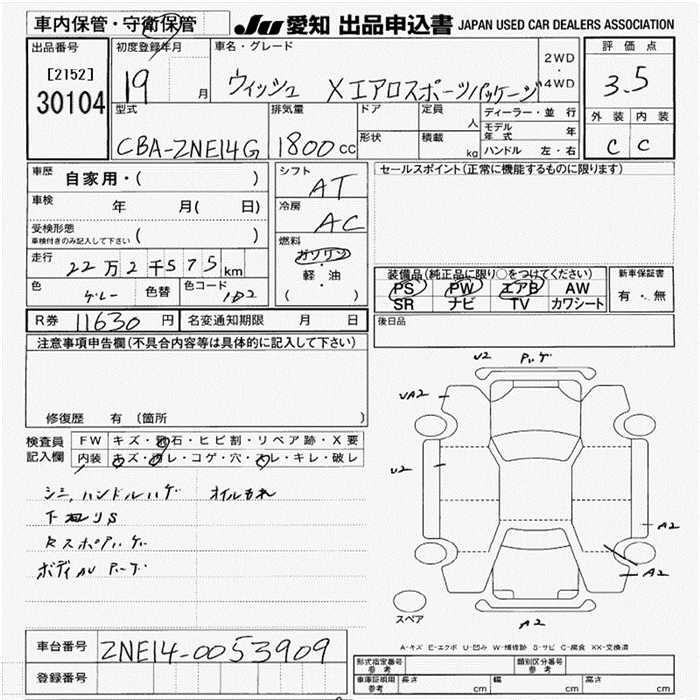 車内保管・守衛保管
JU 愛知 出品申込書 JAPAN USED CAR DEALERS ASSOCIATION
出品番号
[2152]
30104
初度登録年月
19 月
車名・グレード
ウィッシュ Xエアロスポーツパッケージ
2WD
・
4WD
評価点
3.5
外装 内装
C C
型式
CBA-ZNE14G
排気量
1800 cc
ドア
形状
定員
人
積載
kg
ディーラー・並行
モデル年式 年
ハンドル 左・右
車歴
自家用・( )
車検
年 月( 日)
受検形態
車検付きのみ記入して下さい ( )
走行
22万2千575km
色
グレー
色替
色コード
1D2
シフト
AT
冷房
AC
燃料
ガソリン
・
軽・油
( )
セールスポイント(正常に機能するものに限ります)
装備品(純正品に限り○をつけてください)
PS PW エアB AW
SR ナビ TV カワシート
新車保証書
有・無
後日品
R券 11630 円
名変通知期限 月 日
注意事項申告欄(不具合内容等は具体的に記入して下さい)
修復歴 有(箇所 )
検査員
記入欄
FW キズ・飛石・ヒビ割・リペア跡・X要
内装 キズ・汚レ・コゲ・穴・スレ・キレ・破レ
シミ、ハンドルハゲ オイルもれ
ボディ
U2
A2
U2
A2
A2
A2
スペア
A-キズ E-エクボ U-凹み W-補修跡 S-サビ C-腐食 XX-交換済
車台番号
ZNE14-0053909
登録番号
形式指定番号
参考
類別区分番号
参考
車庫証明用
参考
長さ cm
幅 cm
高さ cm